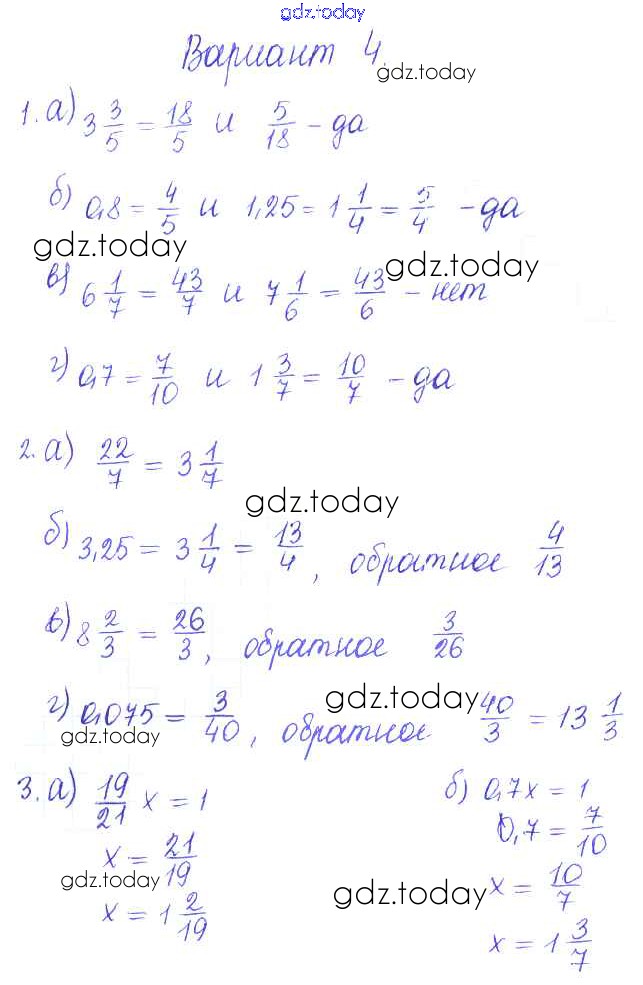 gdz.today
Вариант 4
gdz.today
1. а) 3 3/5 = 18/5 и 5/18 - да
б) 0,8 = 4/5 и 1,25 = 1 1/4 = 5/4 - да
gdz.today
gdz.today
в) 6 1/7 = 43/7 и 7 1/6 = 43/6 - нет
г) 0,7 = 7/10 и 1 3/7 = 10/7 - да
2. а) 22/7 = 3 1/7
gdz.today
б) 3,25 = 3 1/4 = 13/4, обратное 4/13
в) 8 2/3 = 26/3, обратное 3/26
gdz.today
г) 0,075 = 3/40, обратное 40/3 = 13 1/3
gdz.today
3. а) 19/21 x = 1
x = 21/19
gdz.today
x = 1 2/19
б) 0,7x = 1
0,7 = 7/10
x = 10/7
gdz.today
x = 1 3/7